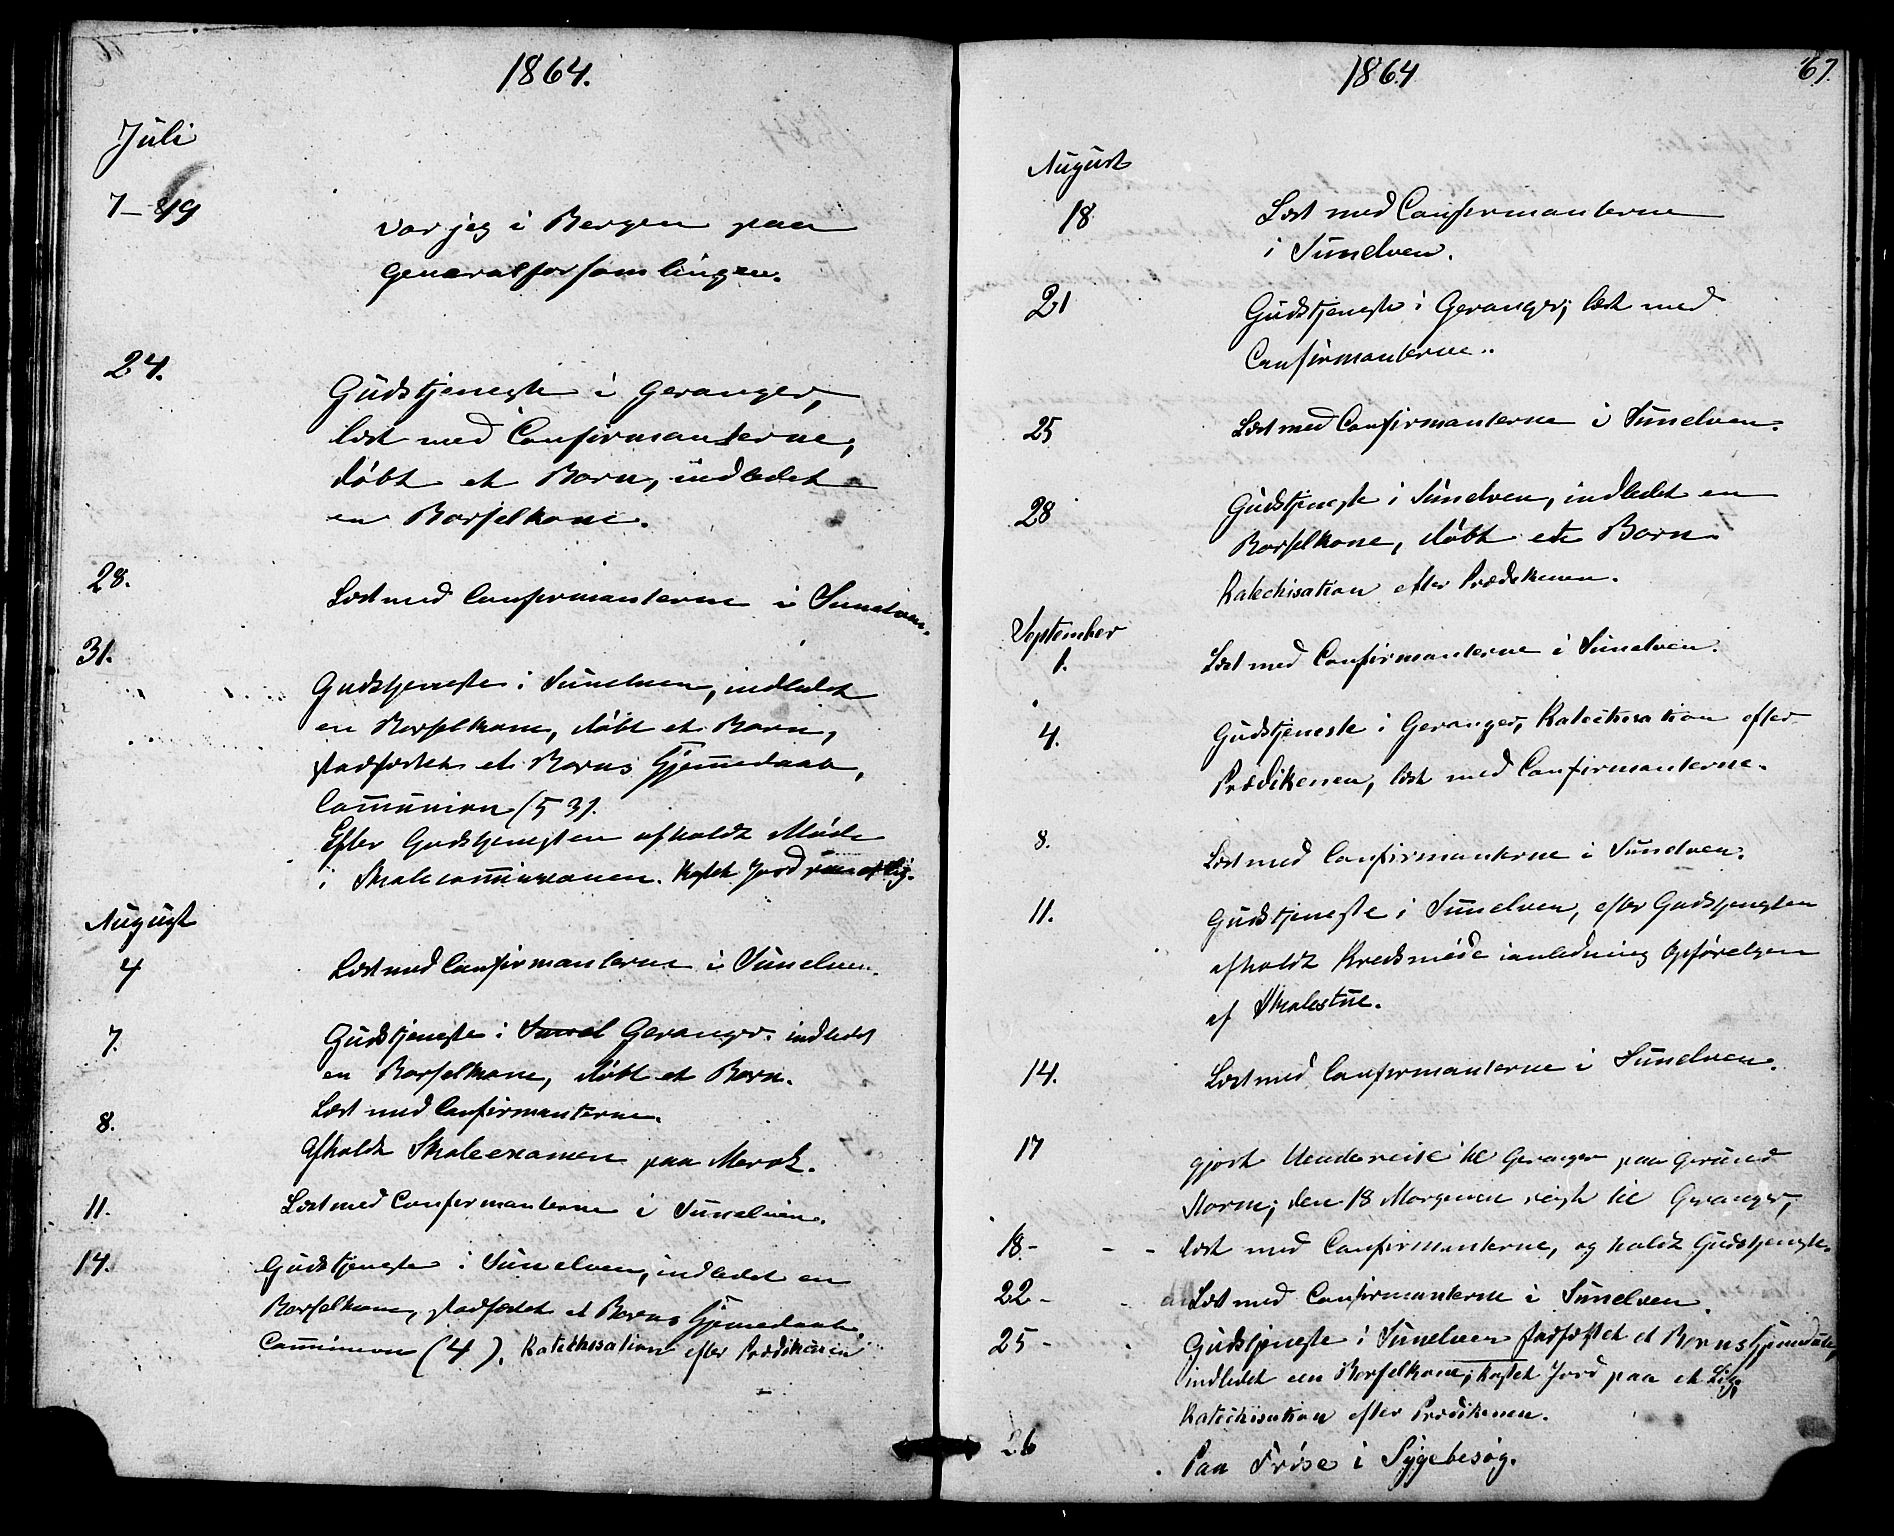 1864.
Juli
7-19
var jeg i Bergen paa
Generalforsamlingen.
24.
Gudstjeneste i Geranger,
læst med Confirmanterne,
døbt et Barn, indledet
en Barselkone.
28.
Læst med Confirmanterne i Sunelven.
31.
Gudstjeneste i Sunelven, indledet
en Barselkone, døbt et Barn,
stadfæstet et Barns Hjemmedaab,
Communion (53).
Efter Gudstjenesten afholdt Møde
i Skolecommisionen. Kastet Jord paa et Lig.
August
4
Læst med Confirmanterne i Sunelven.
7.
Gudstjeneste i Sunel Geranger. indledet
en Barselkone, døbt et Barn.
Læst med Confirmanterne.
8.
Afholdt Skoleexamen paa Merok.
11.
Læst med Confirmanterne i Sunelven.
14.
Gudstjeneste i Sunelven, indledet en
Barselkone, stadfæstet et Barns Hjemmedaab.
Communion (4). Katechisation efter Prædikenen
1864
67.
August
18
Læst med Confirmanterne
i Sunelven.
21
Gudstjeneste i Geranger; læst med
Confirmanterne.
25
Læst med Confirmanterne i Sunelven.
28
Gudstjeneste i Sunelven, indledet en
Barselkone, døbt et Barn.
Katechisation efter Prædikenen.
September
1.
Læst med Confirmanterne i Sunelven.
4.
Gudstjeneste i Geranger, Katechisation efter
Prædikenen, læst med Confirmanterne.
8.
Læst med Confirmanterne i Sunelven.
11.
Gudstjeneste i Sunelven, efter Gudstjenesten
afholdt Kredsmøde i anledning Opførelsen
af Skolestue.
14.
Læst med Confirmanterne i Sunelven.
17
gjort Vendereise til Geranger paa Grund
Storm; den 18 Morgenen reist til Geranger,
18-
læst med Confirmanterne, og holdt Gudstjeneste.
22-
Læst med Confirmanterne i Sunelven.
25-
Gudstjeneste i Sunelven stadfæstet et Barns Hjemmedaab,
indledet en Barselkone, kastet Jord paa et Lig,
Katechisation efter Prædikenen.
26
Paa Frøse i Sygebesøg.